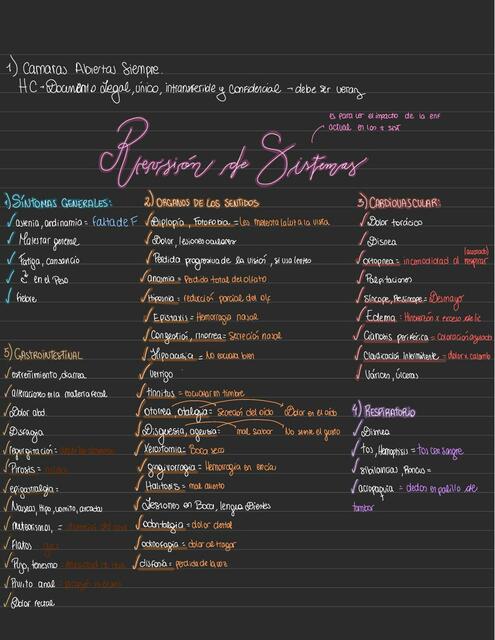 1) Camaras Abiertas Siempre.
HC → Documento Legal, único, intransferible y confidencial → debe ser veraz
es para ver el impacto de la enf
actual en los sist
Revisión de Sistemas
1) SÍNTOMAS GENERALES:
✓ astenia, adinamia = falta de F
✓ Malestar general
✓ Fatiga, cansancio
✓ en el Peso
✓ fiebre
2) ORGANOS DE LOS SENTIDOS
✓ Diplopía, Fotofobia = les molesta la luz a la vista
✓ Dolor, lesiones oculares
✓ Perdida progresiva de la visión, si usa lentes
✓ anosmia = Perdida total del olfato
✓ Hiposmia = reducción parcial del olf
✓ Epistaxis = Hemorragia nasal
✓ Congestión, rinorrea = Secreción nasal
✓ Hipoacusia = No escucha bien
✓ Vertigo
✓ tinnitus = escuchar un timbre
✓ Otorrea, otalgia = Secreción del oído Dolor en el oído
✓ Disgeusia, ageusia = mal sabor No siente el gusto
✓ Xerostomía = Boca seca
✓ gingivorragia = Hemorragia en encía
✓ Halitosis = mal aliento
✓ Lesiones en Boca, lengua, Dientes
✓ odontalgia = dolor dental
✓ odinofagia = dolor al tragar
✓ disfonía = perdida de la voz
3) CARDIOVASCULAR:
✓ Dolor torácico
✓ Disnea
✓ ortopnea = incomodidad al respirar (acostado)
✓ Palpitaciones
✓ Síncope, Presíncope = Desmayo
✓ Edema = Hinchazón x exceso de líc
✓ Cianosis periférica = Coloración azulada
✓ Claudicación intermitente = dolor x calambre
✓ Várices, úlceras
4) RESPIRATORIO
✓ Disnea
✓ tos, Hemoptisis = tos con sangre
✓ Sibilancias,
✓ acropaquia = dedos en palillo de
tambor
5) GASTROINTESTINAL
✓ estreñimiento, diarrea
✓ alteraciones en la materia fecal
✓ Dolor abd.
✓ Disfagia
✓ regurgitación =
✓ Pirosis =
✓ epigastralgia =
✓ Nauseas, Hipo, vomito, arcadas
✓ meteorismos, =
✓ Flatos
✓ Pujo, tenesmo
✓ Prurito anal =
✓ Dolor rectal